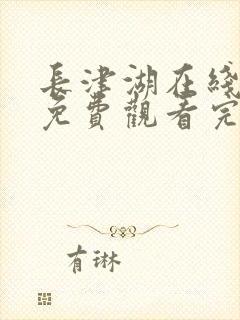 長津湖在綫
免費觀看完
有琳